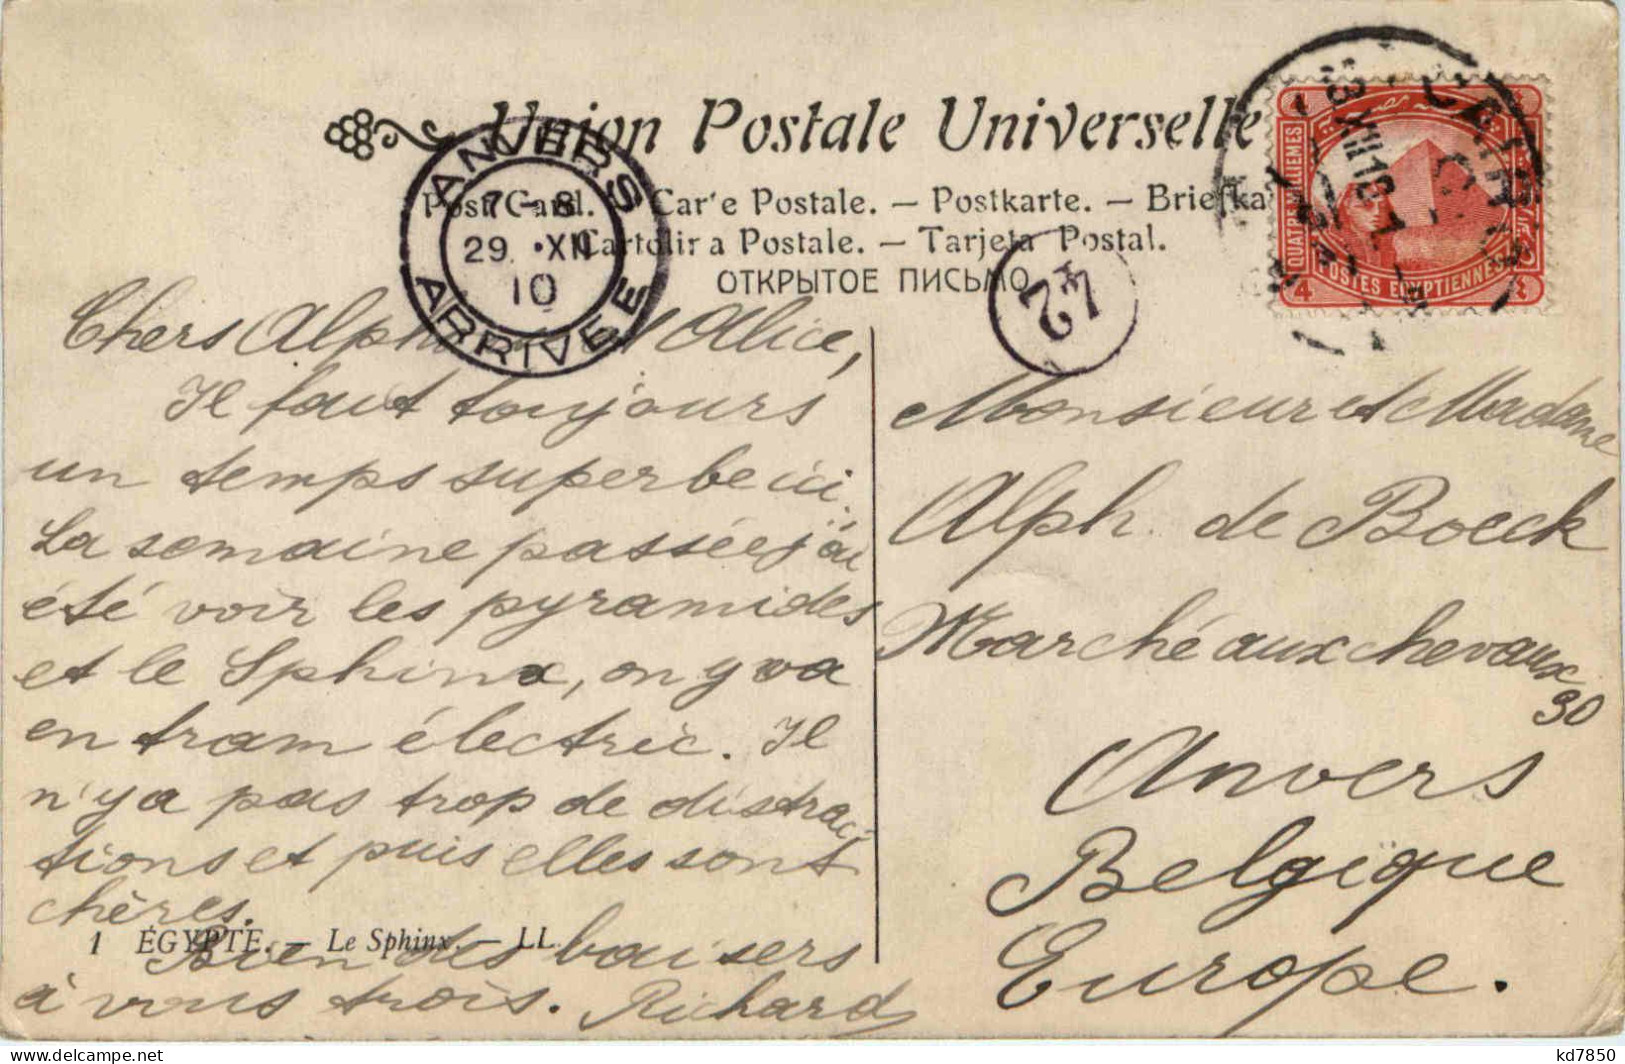 Union Postale Universelle
Post Card. — Carte Postale. — Postkarte. — Briefka
Cartolira Postale. — Tarjeta Postal.
ОТКРЫТОЕ ПИСЬМО
ANVERS
7-8
29 . XII
10
ARRIVEE
24
CAIRO
XII 10
QUATRE MILLIEMES
POSTES EGYPTIENNES
4
٤
Chers Alph et Alice,
Il fait toujours
un temps superbe ici.
La semaine passée j'ai
été voir les pyramides
et le Sphinx, on y va
en tram électric. Il
n'y a pas trop de distrac-
tions et puis elles sont
chères.
Bien des baisers
à vous trois. Richard
1 ÉGYPTE. — Le Sphinx. — LL.
Monsieur et Madame
Alph. de Boeck
Marché aux chevaux
30
Anvers
Belgique
Europe.
kd7850